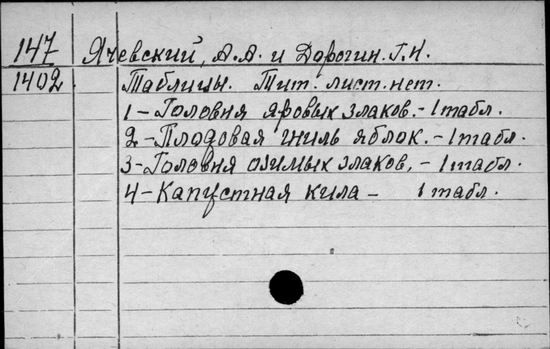 147 Ячевский, А.А. и Дорогин. Г.Н.
1402 Таблицы. Тит. лист. нет.
1 – Головня яровых злаков. – 1 табл.
2 – Плодовая гниль яблок. – 1 табл.
3 – Головня озимых злаков. – 1 табл.
4 – Капустная кила – 1 табл.